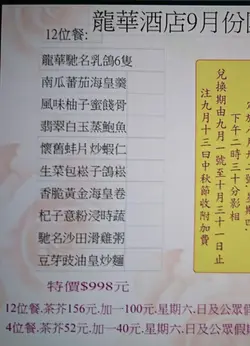 龍華酒店9月份
12位餐:
龍華馳名乳鴿6隻
南瓜蕃茄海皇羹
風味柚子蜜餞骨
翡翠白玉蒸鮑魚
懷舊蚌片炒蝦仁
生菜包崧子鴿崧
香脆黃金海皇卷
杞子意粉浸時蔬
馳名沙田滑雞粥
豆芽豉油皇炒麵
特價$998元
12位餐.茶芥156元.加一100元.星期六.日及公眾假
4位餐.茶芥52元.加一40元.星期六.日及公眾假
下午二時三十分影相
兌換期由九月一號至十月三十一日止
注九月十三日中秋節收附加費